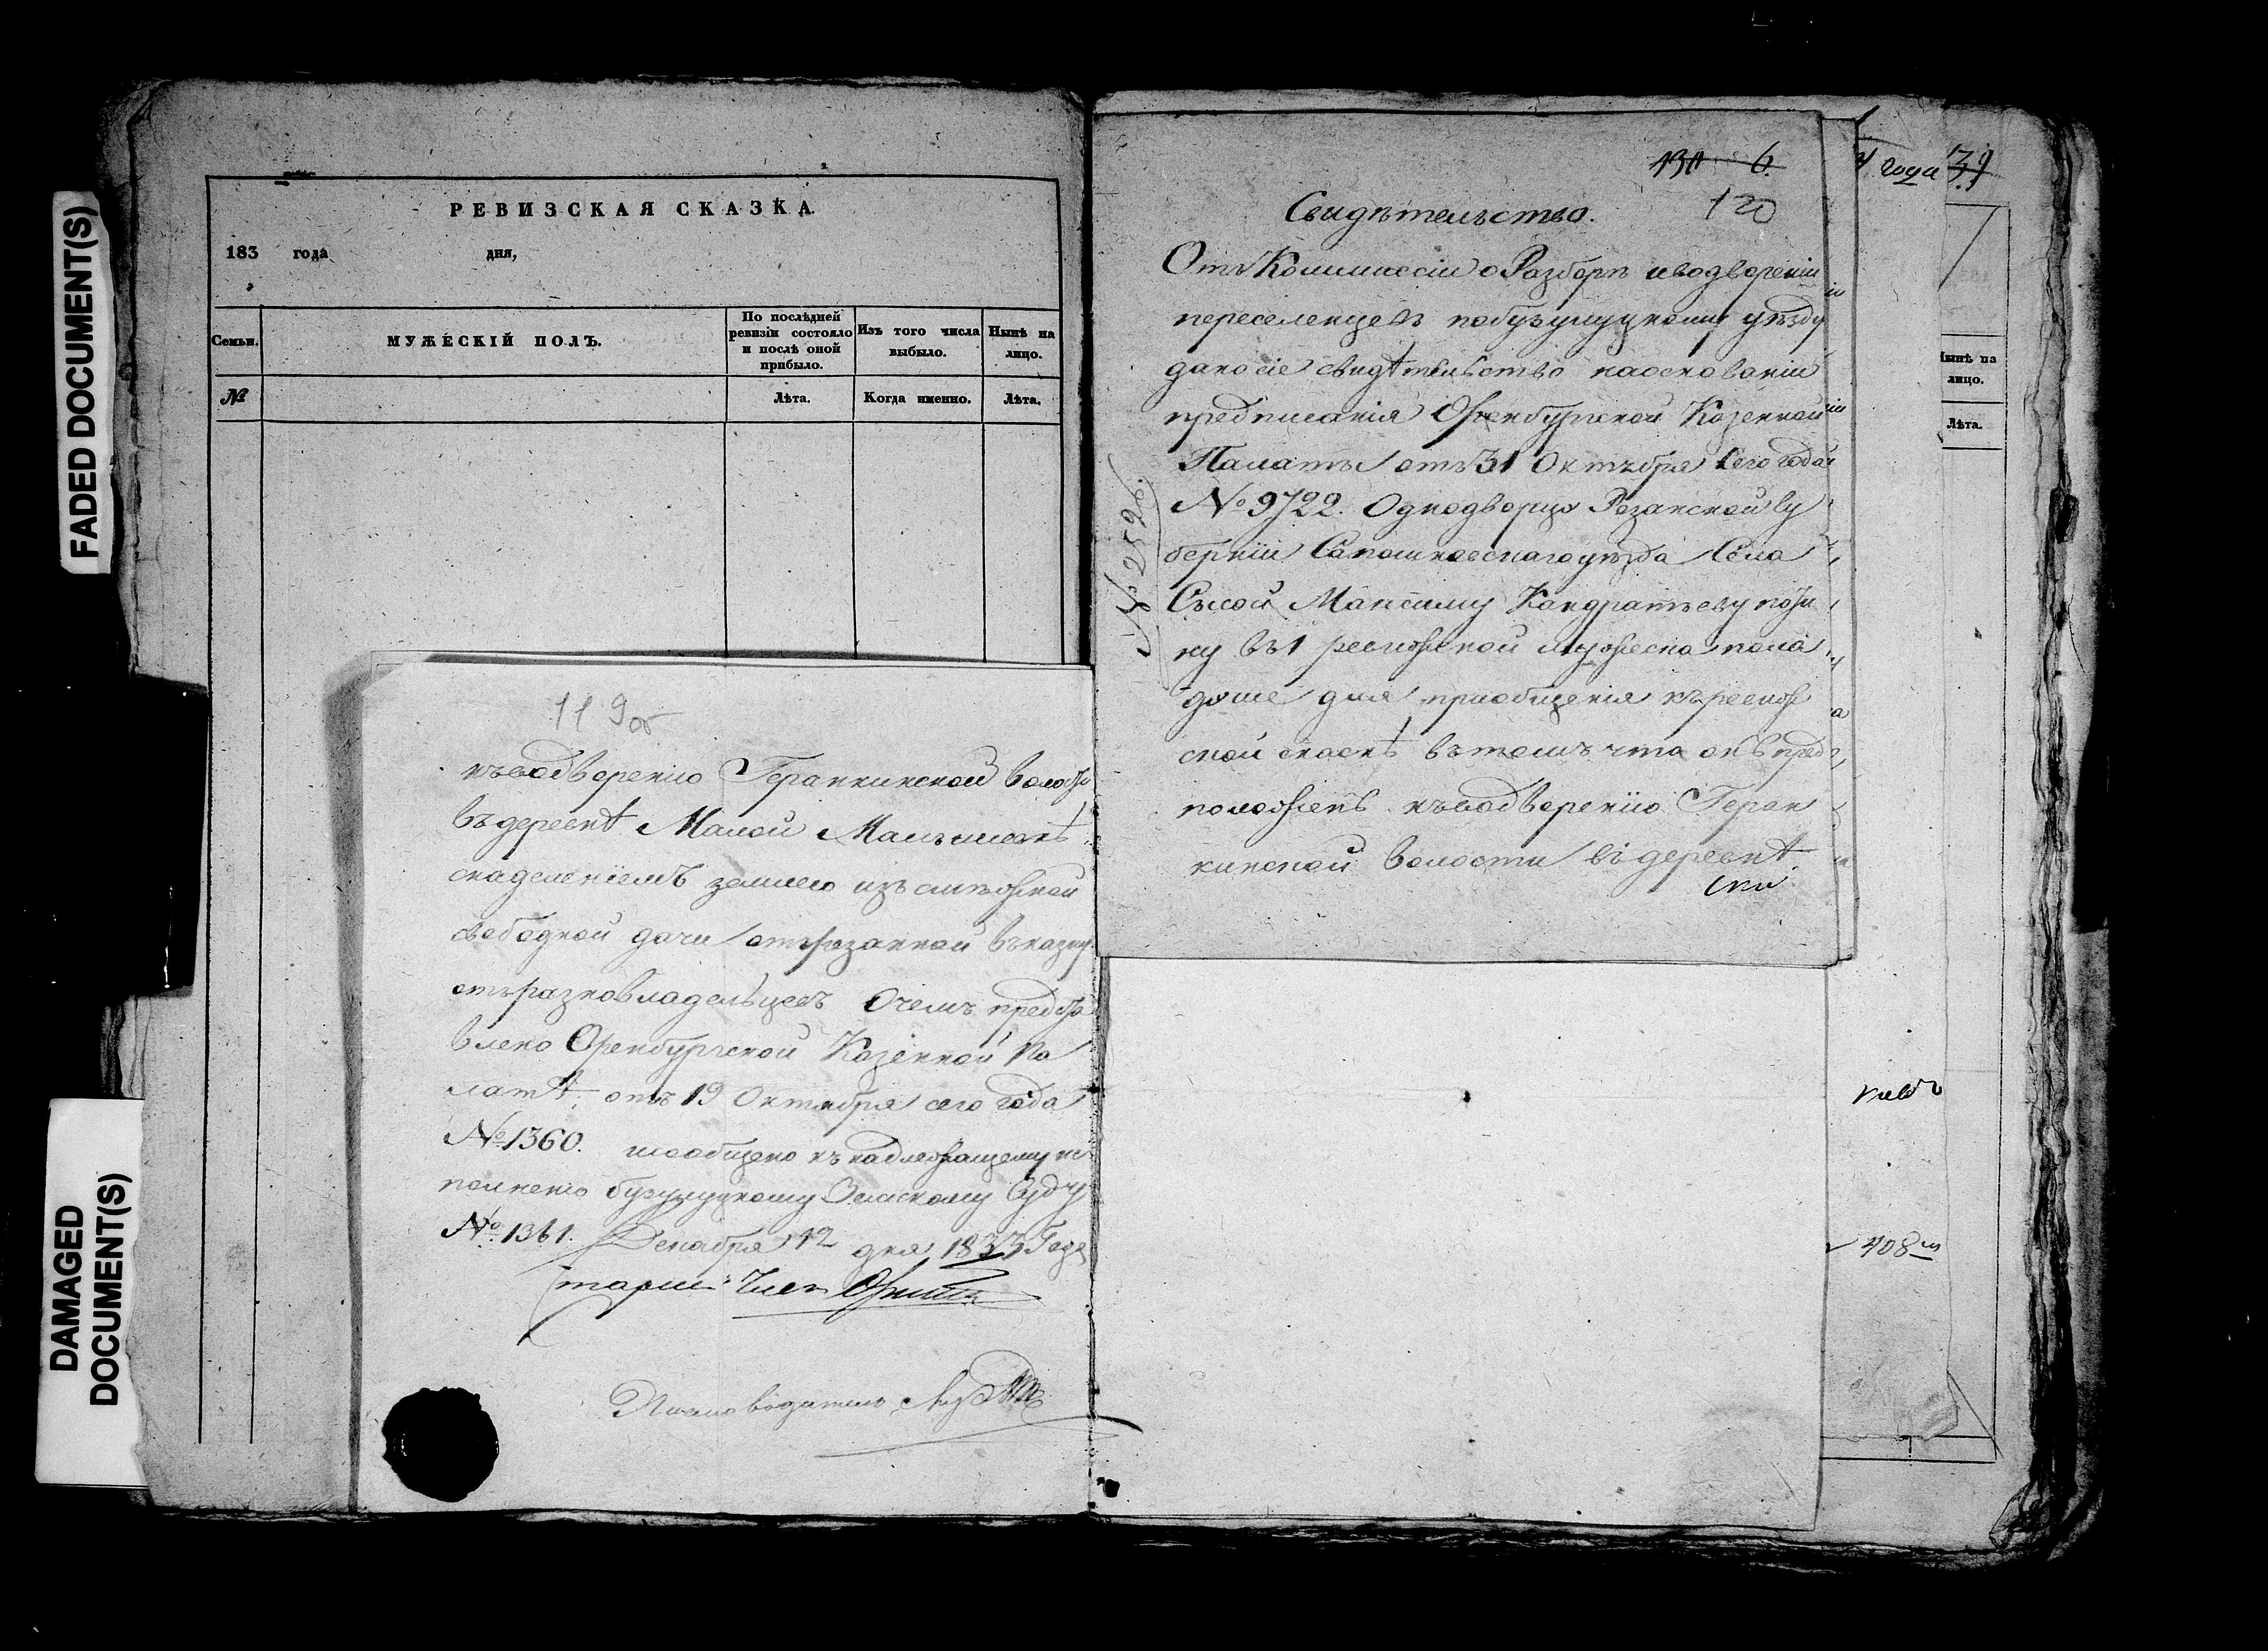 FADED DOCUMENT(S)
DAMAGED
DOCUMENT(S)
РЕВИЗСКАЯ СКАЗКА.
183 года дня,
Семьи.
МУЖЕСКІЙ ПОЛЪ.
По послѣдней
ревизіи состояло
и послѣ оной
прибыло.
Изъ того числа
выбыло.
Нынѣ на
лицо.
№
Лѣта.
Когда именно.
Лѣта.
119об
къводворенію Геранкинской волости
въдеревнѣ Малой
снаделеніемъ землею изъ смѣжной
свободной дачи отрѣзанной въказну
отъразновладельцевъ Очемъ предста
влено Оренбургской Казенной Па
латѣ отъ 19 Октября сего года
№1360. исообщено къ надлежащему ис
полненію бугулуцкому Земскому Суду
№1361. Декабря 12 дня 1833 Года
Старш: Член
Письмоводитель
130 6.
120
Свидѣтельство.
Отъ Коммиссіи о Разборѣ иводвореніи
переселенцевъ побугулуцкому уѣзду
дано сіе свидѣтельство наоснованіи
предписанія Оренбургской Казенной
Палаты отъ 31 Октября сего года
№9722. Однодворцу Резанской Гу
берніи Сапошковскаго уѣзда Села
Сысой Максиму Кандратьеву
ну въ1 ревижской мужеска пола
душе для приобщенія къревиж
ской скаскѣ вътомъ что онъ пред
положенъ къводворенію Геран
кинской волости въдеревнѣ
№ 2592.
года
Нынѣ на
лицо.
Лѣта.
408